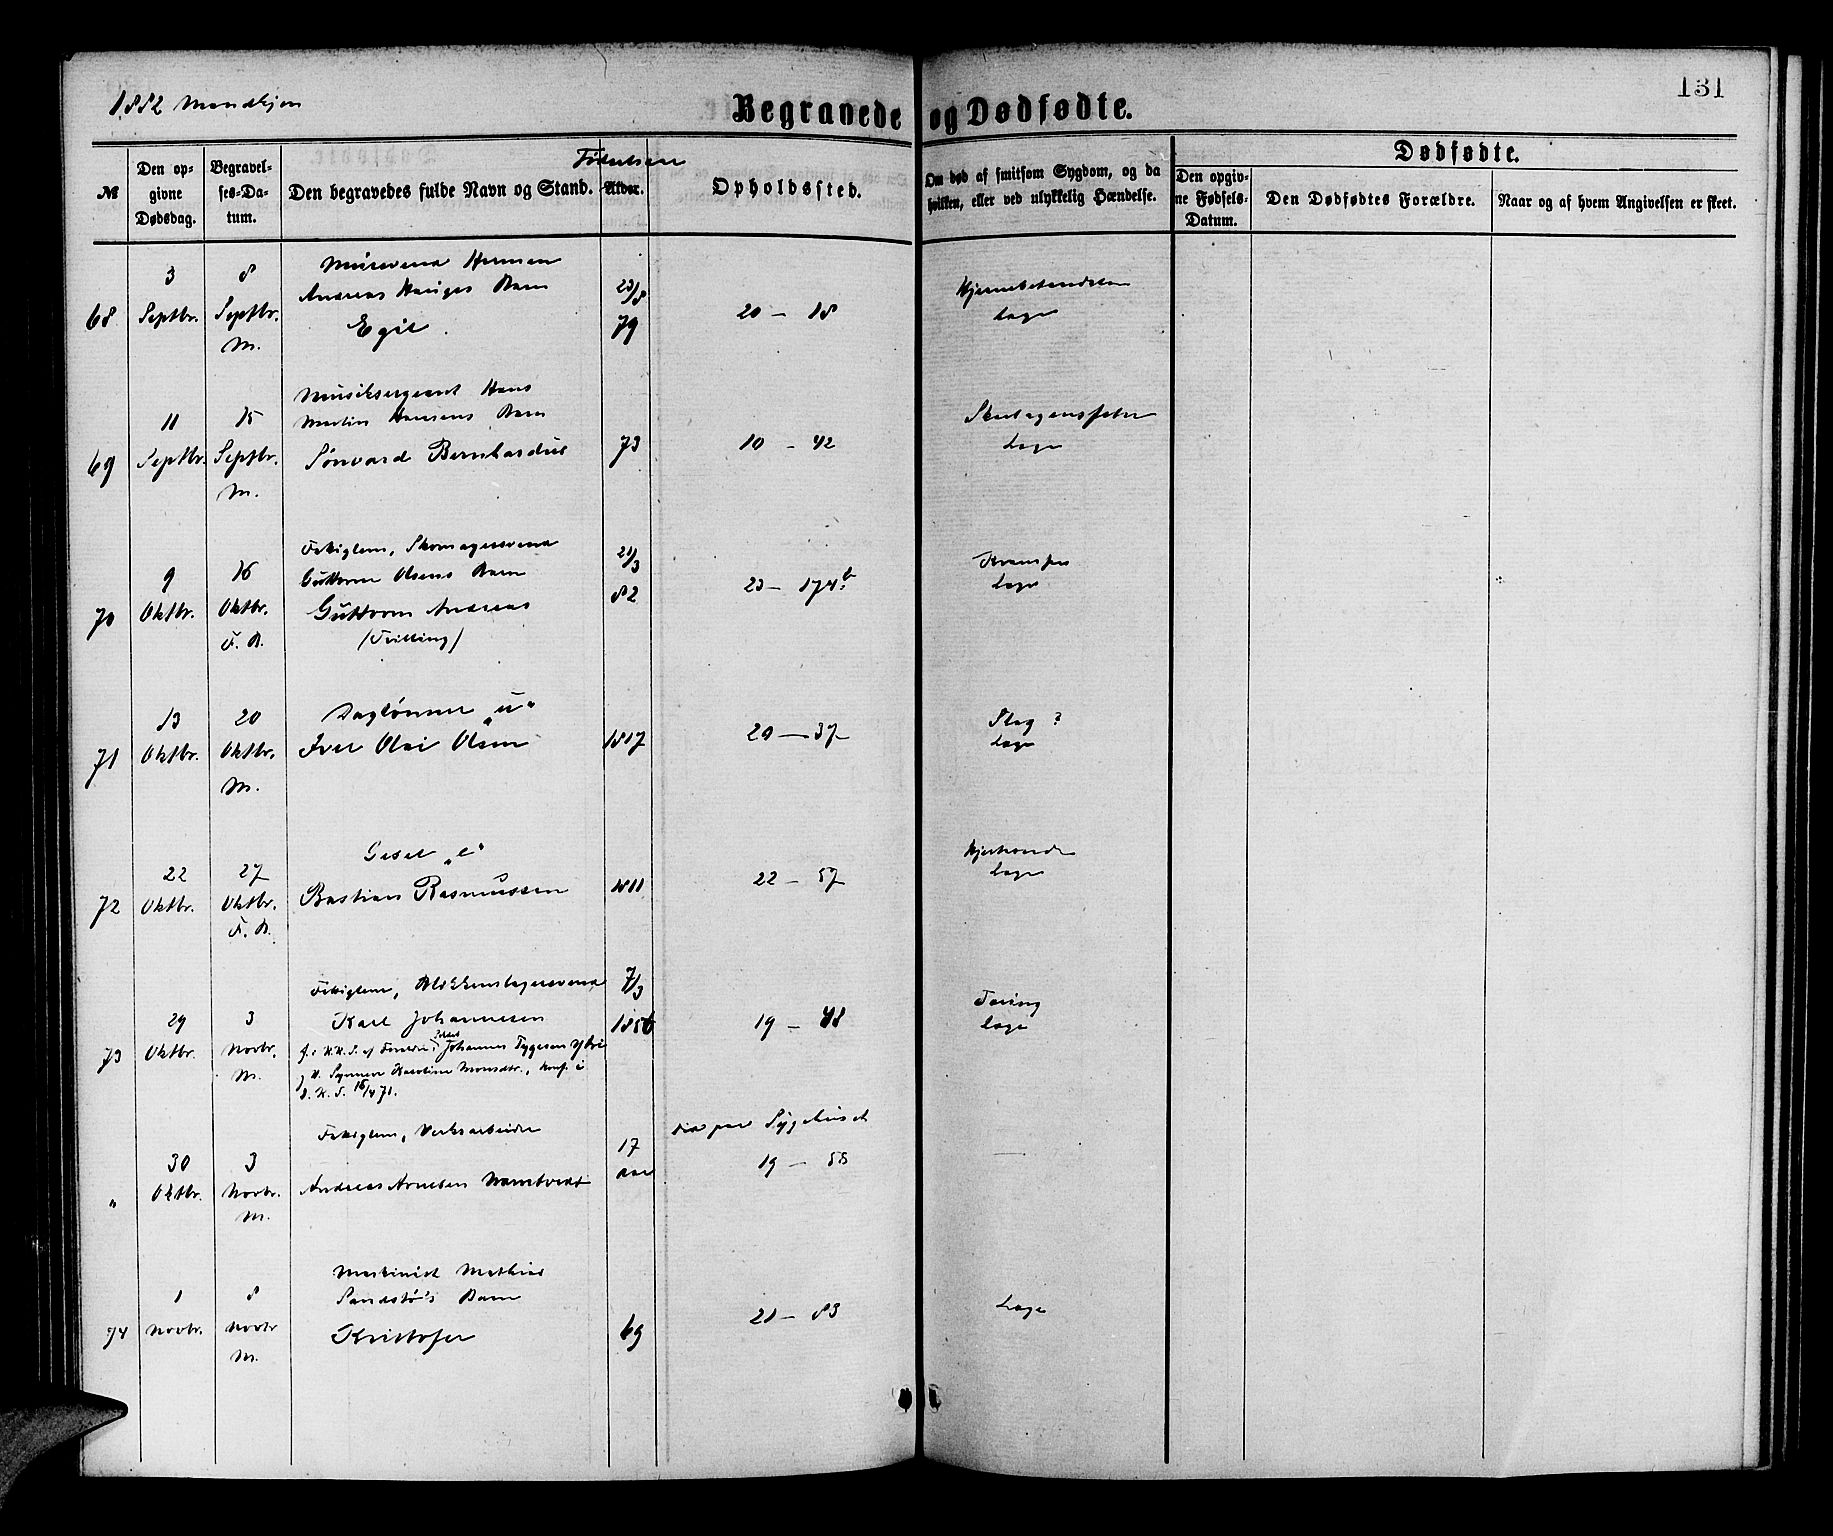 1882 Mandkjøn
Begravede og Dødfødte.
131
№
Den op-
givne
Dødsdag.
Begravel-
ses-Da-
tum.
Den begravedes fulde Navn og Stand.
Fødselsaar
Alder.
Opholdssted.
Om død af smitsom Sygdom, og da
hvilken, eller ved ulykkelig Hændelse.
Dødfødte.
Den opgiv-
ne Fødsels-
Datum.
Den Dødfødtes Forældre.
Naar og af hvem Angivelsen er skeet.
68
3
Septbr.
8
Septbr.
M.
Murersvend Herman
Andreas Hauges Barn
Egil.
23/8
79
20 — 18
Hjernebetændelse
Læge
69
11
Septbr.
15
Septbr.
M.
Musiksergeant Hans
Martin Hansens Barn
Sønvard Bernhardus
73
10 — 42
Skarlagensfeber
Læge
70
9
Oktbr.
16
Oktbr.
F. B.
Fattiglem, Skomagersvend
Guttorm Olsens Barn
Guttorm Andreas
(Tvilling)
21/3
82
23 — 174b.
Krampe
Læge
71
13
Oktbr.
20
Oktbr.
M.
Daglønner „u“
Iver Olai Olsen
1817
20 — 37
Slag ?
Læge
72
22
Oktbr.
27
Oktbr.
F. B.
Gesel „e“
Bastian Rasmussen
1811
22 — 57
Læge
73
29
Oktbr.
3
Novbr.
M.
Fattiglem, Blikkenslagersvend
Karl Johannesen
Johannes Tygesen
Karoline Monsdtr., konf. i
D. K. S. 16/4 71.
7/3
1856
19 — 48
Tæring
Læge
„
30
Oktbr.
3
Novbr.
M.
Fattiglem, Verksarbeider
Andreas Arnesen Namtvedt
17
aar
død paa Sygehuset
19 — 55
74
1
Novbr.
8
Novbr
M.
Maskinist Mathias
Sandstø's Barn
Kristofer
69
21 — 83
Læge